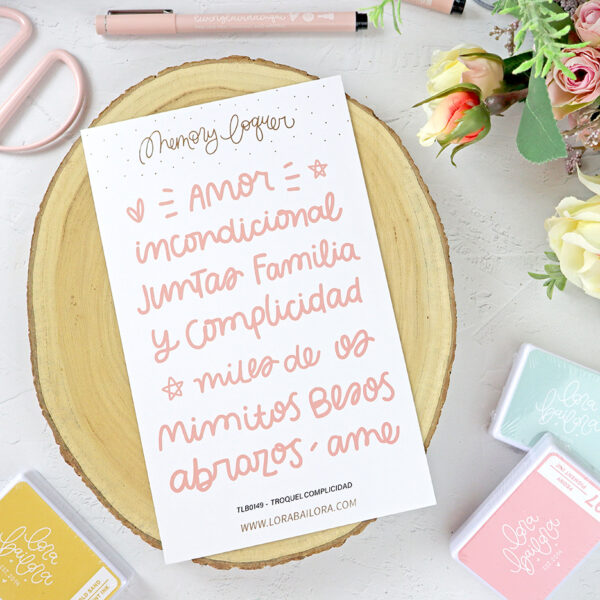 Memory Loquer
AMOR
incondicional
Juntas Familia
y Complicidad
miles de os
Mimitos Besos
abrazos - ame
TLB0149 - TROQUEL COMPLICIDAD
WWW.LORABAILORA.COM
lora
bailora
lora
bailora
lora
bailora